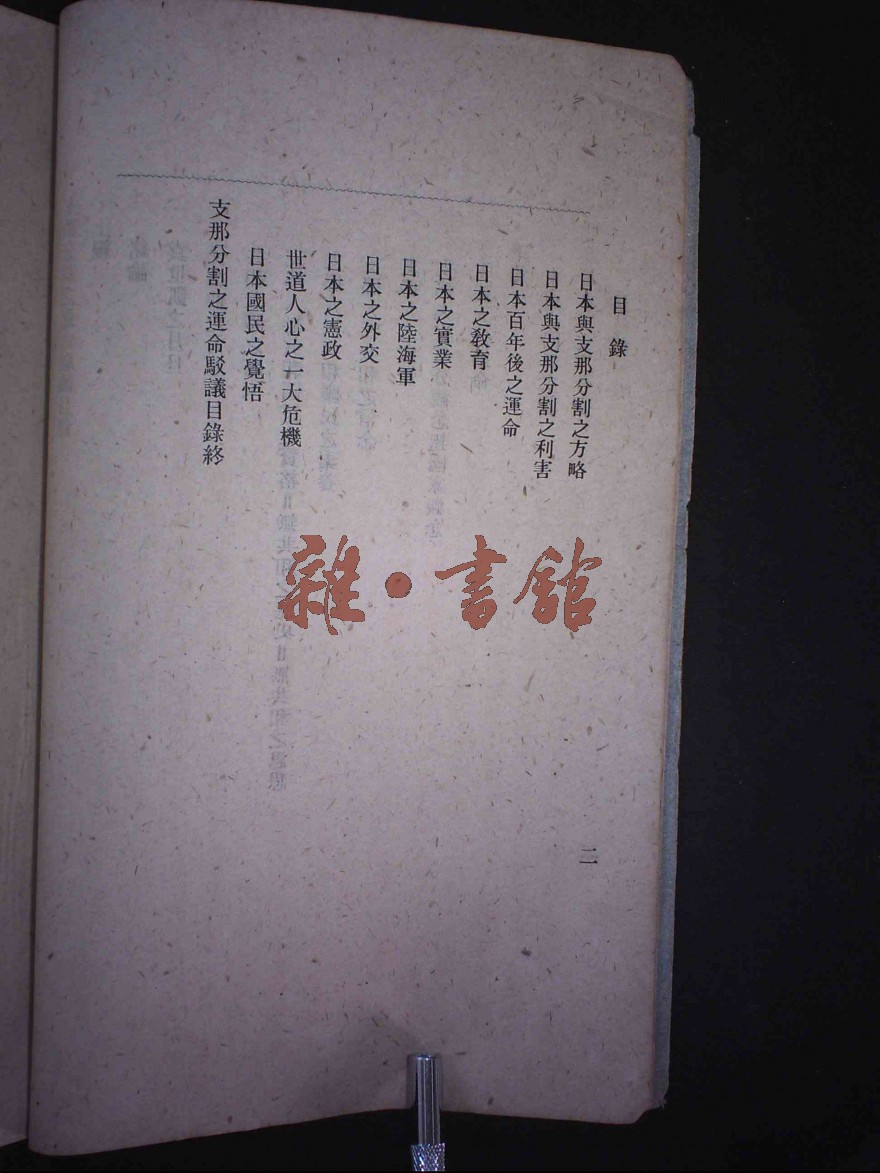 目錄
日本與支那分割之方略
日本與支那分割之利害
日本百年後之運命
日本之教育
日本之實業
日本之陸海軍
日本之外交
日本之憲政
世道人心之一大危機
日本國民之覺悟
支那分割之運命駁議目錄終
二
雜·書館